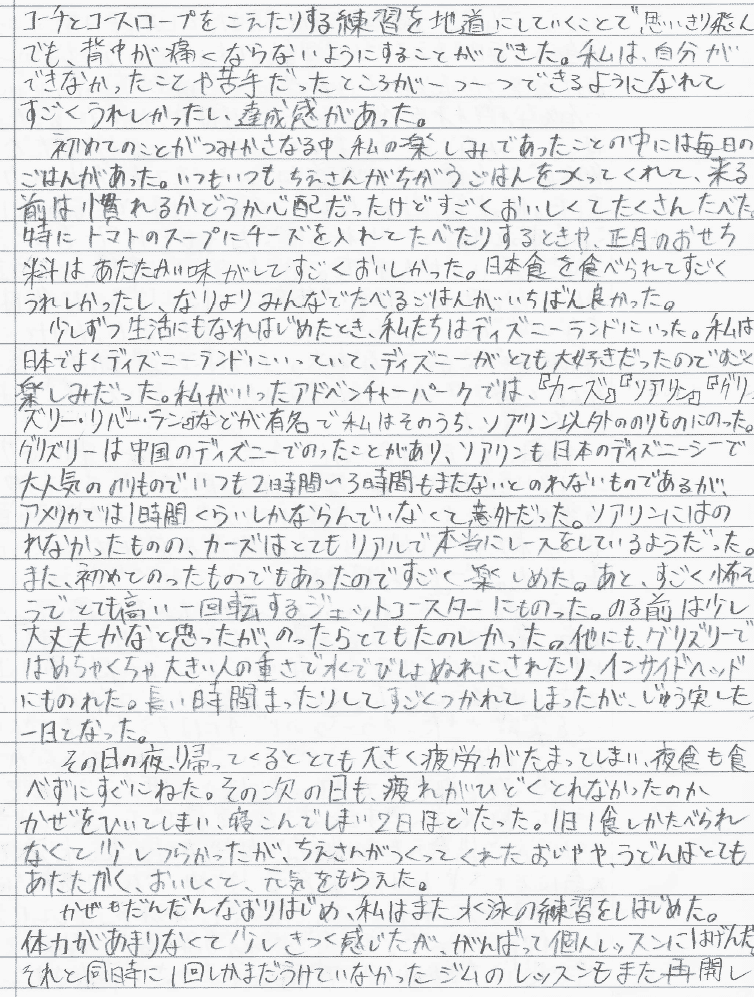 コーチとコースロープをこえたりする練習を地道にしていくことで思いきり飛ん
でも、背中が痛くならないようにすることができた。私は、自分が
できなかったことや苦手だったところが一つ一つできるようになれて
すごくうれしかったし、達成感があった。
初めてのことがつみかさなる中、私の楽しみであったことの中には毎日の
ごはんがあった。いつもいつも、ちえさんがちがうごはんをつくってくれて、来る
前は慣れるかどうか心配だったけどすごくおいしくてたくさんたべた。
特にトマトのスープにチーズを入れてたべたりするときや、正月のおせち
料はあたたかい味がしてすごくおいしかった。日本食を食べられてすごく
うれしかったし、なりよりみんなでたべるごはんがいちばん良かった。
少しずつ生活にもなれはじめたとき、私たちはディズニーランドにいった。私は
日本でよくディズニーランドにいっていて、ディズニーがとても大好きだったのですごく
楽しみだった。私がいったアドベンチャーパークでは、『カーズ』『ソアリン』『グリ
ズリー・リバー・ラン』などが有名で私はそのうち、ソアリン以外ののりものにのった。
グリズリーは中国のディズニーでのったことがあり、ソアリンも日本のディズニーシーで
大人気ののりものでいつも2時間〜3時間もまたないとのれないものであるが、
アメリカでは1時間くらいしかならんでいなくて意外だった。ソアリンにはの
れなかったものの、カーズはとてもリアルで本当にレースをしているようだった。
また、初めてのったものでもあったのですごく楽しめた。あと、すごく怖そ
うでとても高い一回転するジェットコースターにものった。のる前は少し
大丈夫かなと思ったが、のったらとてもたのしかった。他にも、グリズリーで
はめちゃくちゃ大きい人の重さで水でびしょぬれにされたり、インサイドヘッド
にものれた。長い時間まったりしてすごくつかれてしまったが、じゅう実した
一日となった。
その日の夜、帰ってくるととても大きく疲労がたまってしまい、夜食も食
べずにすぐにねた。その次の日も、疲れがひどくとれなかったのか
かぜをひいてしまい、寝こんでしまい2日ほどたった。1日1食しかたべられ
なくて少しつらかったが、ちえさんがつくってくれたおじやや、うどんはとても
あたたかく、おいしくて、元気をもらえた。
かぜもだんだんなおりはじめ、私はまた水泳の練習をしはじめた。
体力があまりなくて少しきつく感じたが、がんばって個人レッスンにはげんだ。
それと同時に1回しかまだうけていなかったジムのレッスンもまた再開し